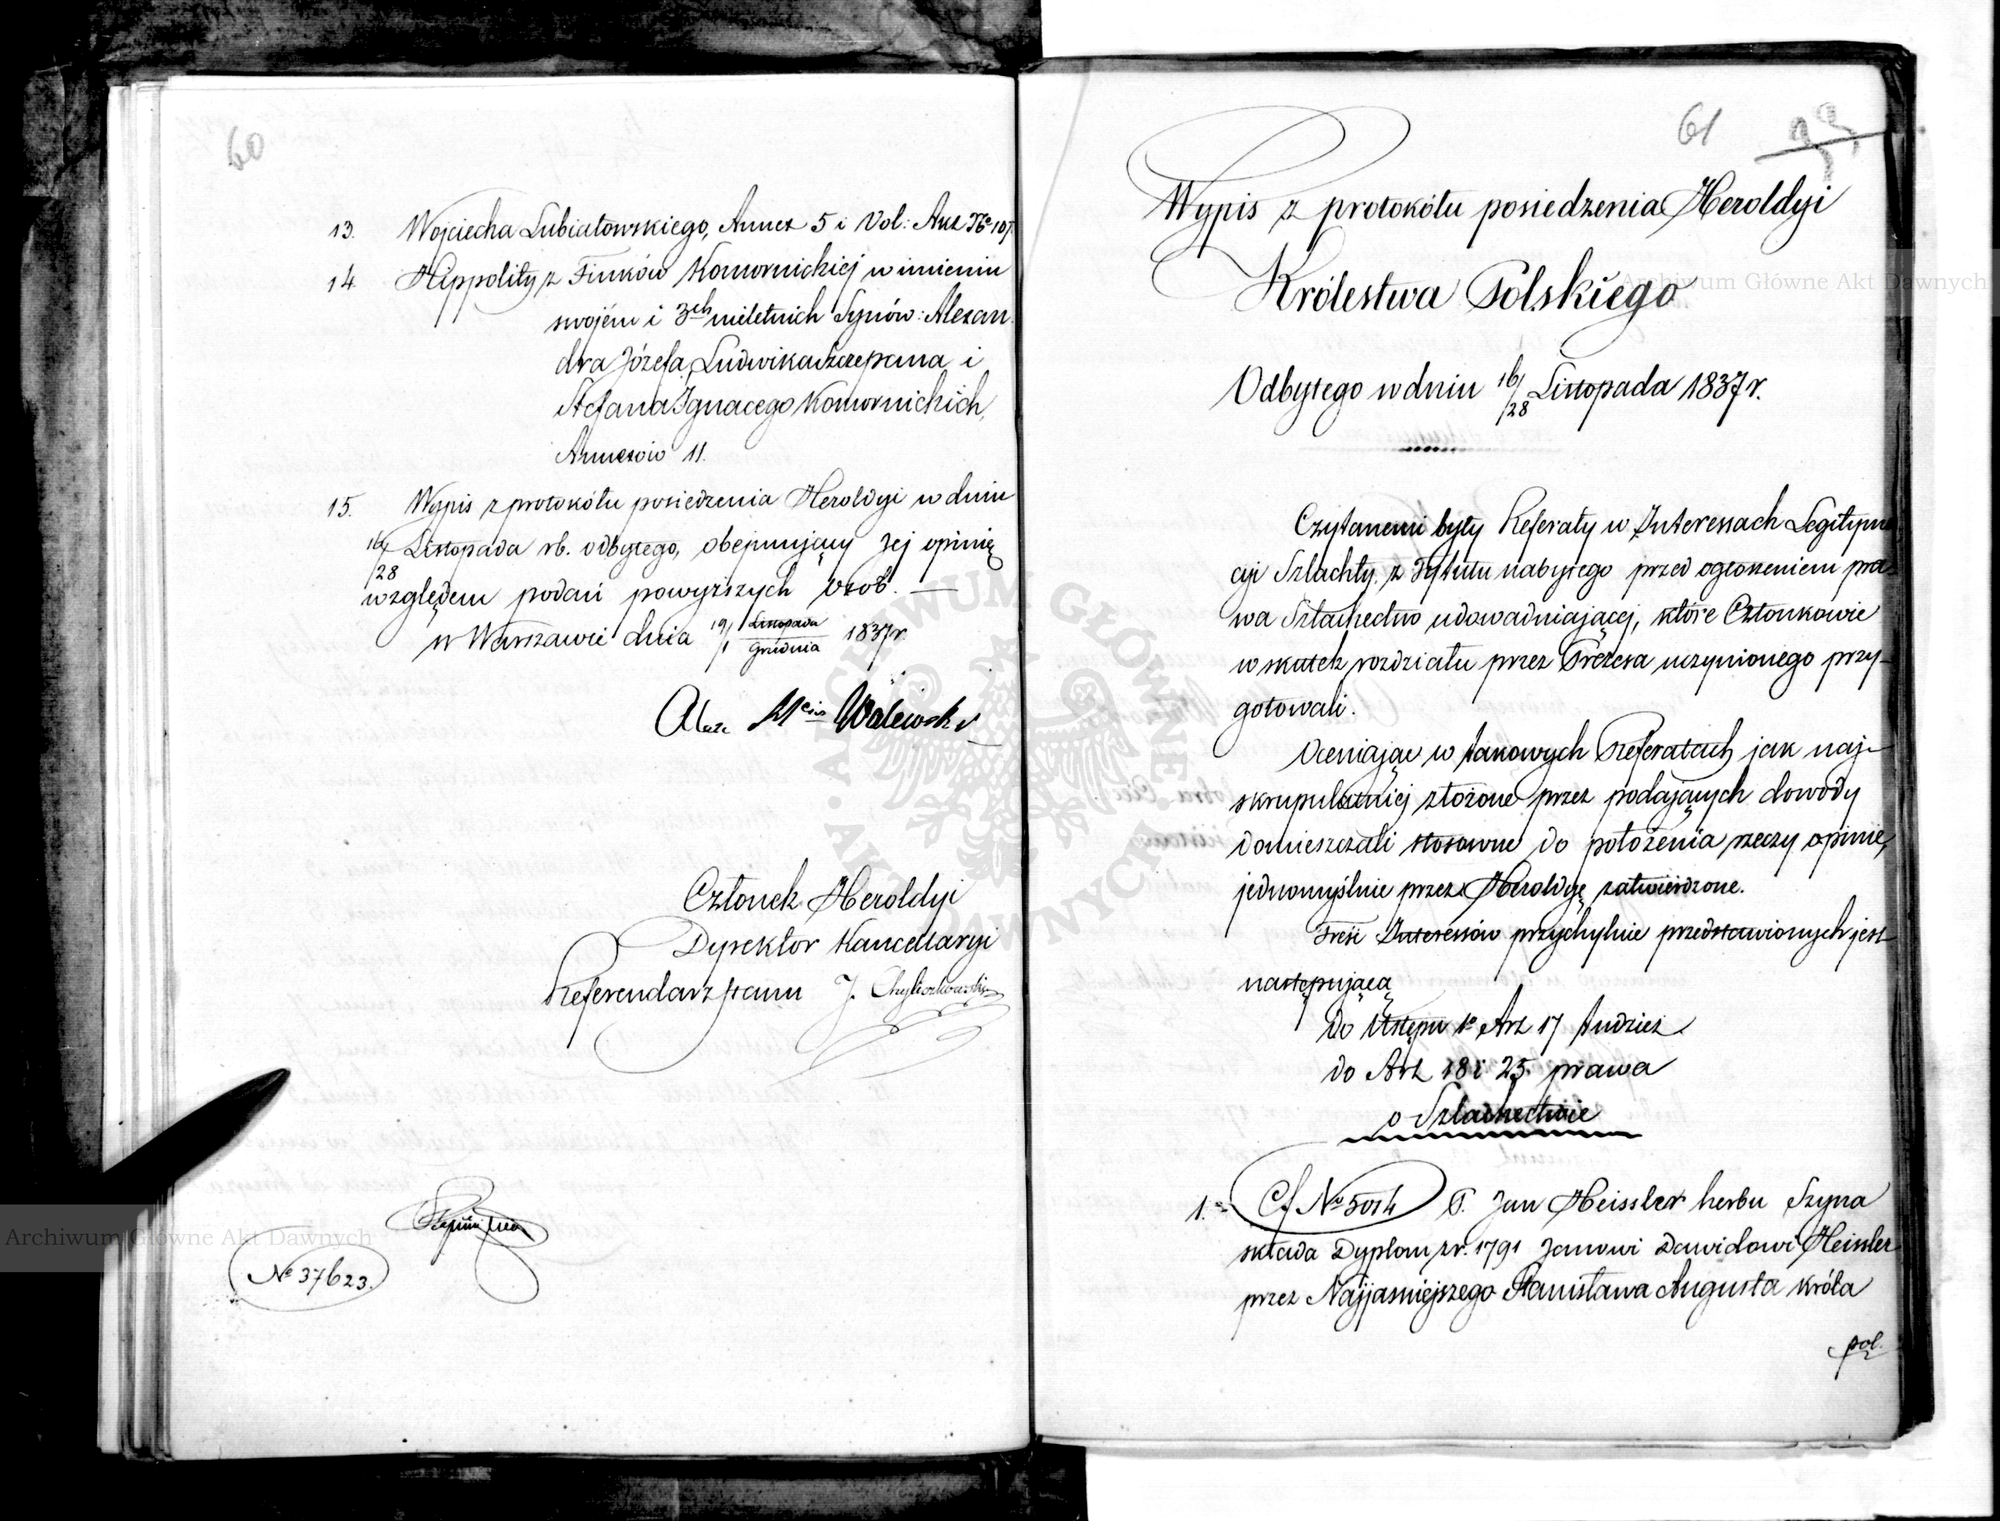 60
13. Wojciecha Lubiatowskiego, Annex 5 i Vol: Akt No 107.
14 Hippolity z Finków Komornickiej w imieniu
swojém i 3ch nieletnich Synów: Alexan
dra Józefa, Ludwika Szczepana i
Stefana Ignacego Komornickich,
Annexów 11.
15. Wypis z protokółu posiedzenia Heroldyi w dniu
16/28 Listopada rb. odbytego, obejmujący Jej opinię
względem podań powyższych Osób. —
w Warszawie dnia 19/1 Listopada/Grudnia 1837 r.
Alex Walewski
Członek Heroldyi
Dyrektor Kancellaryi
Referendarz stanu J.
No 37623.
61
Wypis z protokółu posiedzenia Heroldyi
Królestwa Polskiego
Odbytego w dniu 16/28 Listopada 1837 r.
Czytanemi były Referaty w Interessach Legitymacyi
Szlachty, z tytułu nabytego przed ogłoszeniem pra-
wa Szlachectwo udowadniającej, które Członkowie
w skutek rozdziału przez Prezesa uczynionego przy-
gotowali.
Oceniając w takowych Referatach jak naj-
skrupulatniej złożone przez podających dowody
domieszczali stosowne do położenia rzeczy opinie,
jednomyślnie przez Heroldyę zatwierdzone.
Treść Interessów przychylnie przedstawionych jest
następująca
do Ustępu 1o Art 17 tudzież
do Art 18 i 25. prawa
o Szlachectwie
1. Cf No 5014 P. Jan Heissler herbu Szyna
składa Dyplom z r. 1791 Janowi Dawidowi Heissler
przez Najjaśniejszego Stanisława Augusta króla
pol.
Archiwum Główne Akt Dawnych
Archiwum Główne Akt Dawnych
ARCHIWUM GŁÓWNE AKT DAWNYCH